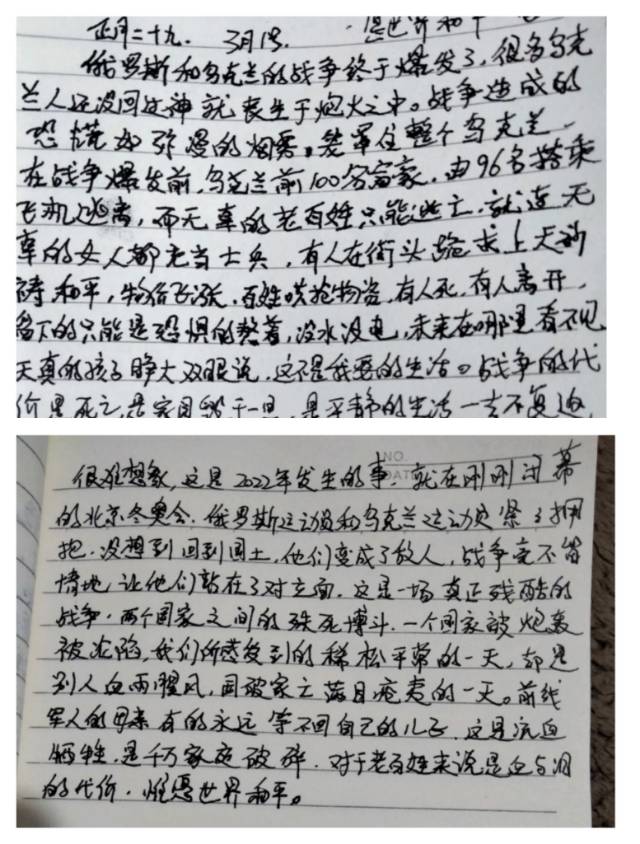 正月二十九. 3月1号. · 愿世界和平
俄罗斯和乌克兰的战争终于爆发了,很多乌克
兰人还没回过神就丧生于炮火之中。战争造成的
恐慌如弥漫的烟雾,笼罩住整个乌克兰
在战争爆发前,乌克兰前100名富豪,由96名搭乘
飞机逃离,而无辜的老百姓只能逃亡.就连无
辜的女人都充当士兵,有人在街头跪求上天祈
祷和平,物价飞涨.百姓哄抢物资,有人死,有人离开,
留下的只能是恐惧的熬着,没水没电,未来在哪里看不见
天真的孩子睁大双眼说,这不是我要的生活。战争的代
价是死亡是家园毁于一旦,是平静的生活一去不复返
NO.
DAT
很难想象,这是2022年发生的事,就在刚刚闭幕
的北京冬奥会.俄罗斯运动员和乌克兰运动员紧紧拥
抱.没想到回到国土,他们变成了敌人,战争毫不留
情地让他们站在了对立面.这是一场真正残酷的
战争.两个国家之间的殊死博斗.一个国家被炮轰
被沦陷,我们所感受到的稀松平常的一天,却是
别人血雨腥风,国破家亡满目疮夷的一天。前线
军人的母亲有的永远等不回自己的儿子.这是流血
牺牲,是千万家庭破碎.对于老百姓来说是血与泪
的代价.惟愿世界和平。